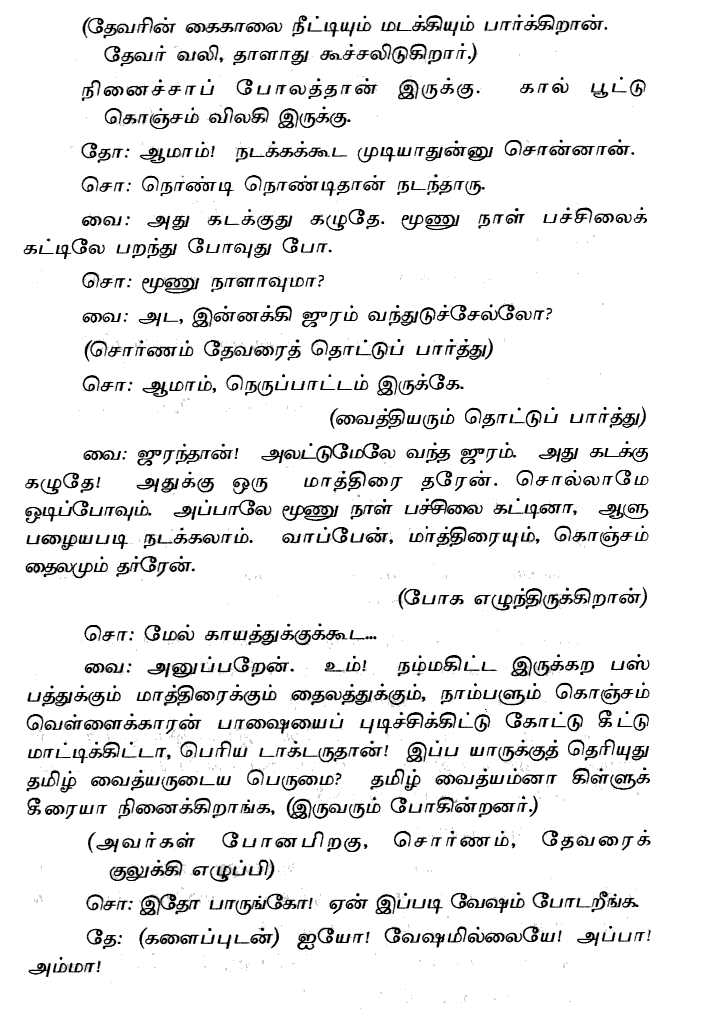 (தேவரின் கைகாலை நீட்டியும் மடக்கியும் பார்க்கிறான்.
தேவர் வலி, தாளாது கூச்சலிடுகிறார்.)
நினைச்சாப் போலத்தான் இருக்கு. கால் பூட்டு
கொஞ்சம் விலகி இருக்கு.
தோ: ஆமாம்! நடக்கக்கூட முடியாதுன்னு சொன்னான்.
சொ: நொண்டி நொண்டிதான் நடந்தாரு.
வை: அது கடக்குது கழுதே. மூணு நாள் பச்சிலைக்
கட்டிலே பறந்து போவுது போ.
சொ: மூணு நாளாவுமா?
வை: அட, இன்னக்கி ஜுரம் வந்துடுச்சேல்லோ?
(சொர்ணம் தேவரைத் தொட்டுப் பார்த்து)
சொ: ஆமாம், நெருப்பாட்டம் இருக்கே.
(வைத்தியரும் தொட்டுப் பார்த்து)
வை: ஜுரந்தான்! அலட்டுமேலே வந்த ஜுரம். அது கடக்கு
கழுதே! அதுக்கு ஒரு மாத்திரை தரேன். சொல்லாமே
ஓடிப்போவும். அப்பாலே மூணு நாள் பச்சிலை கட்டினா, ஆளு
பழையபடி நடக்கலாம். வாப்பேன், மாத்திரையும், கொஞ்சம்
தைலமும் தர்ரேன்.
(போக எழுந்திருக்கிறான்)
சொ: மேல் காயத்துக்குக்கூட...
வை: அனுப்பறேன். உம்! நம்மகிட்ட இருக்கற பஸ்
பத்துக்கும் மாத்திரைக்கும் தைலத்துக்கும், நாம்பளும் கொஞ்சம்
வெள்ளைக்காரன் பாஷையைப் புடிச்சிக்கிட்டு கோட்டு கீட்டு
மாட்டிக்கிட்டா, பெரிய டாக்டருதான்! இப்ப யாருக்குத் தெரியுது
தமிழ் வைத்யருடைய பெருமை? தமிழ் வைத்யம்னா கிள்ளுக்
கீரையா நினைக்கிறாங்க, (இருவரும் போகின்றனர்.)
(அவர்கள் போனபிறகு, சொர்ணம், தேவரைக்
குலுக்கி எழுப்பி)
சொ: இதோ பாருங்கோ! ஏன் இப்படி வேஷம் போடறீங்க.
தே: (களைப்புடன்) ஐயோ! வேஷமில்லையே! அப்பா!
அம்மா!